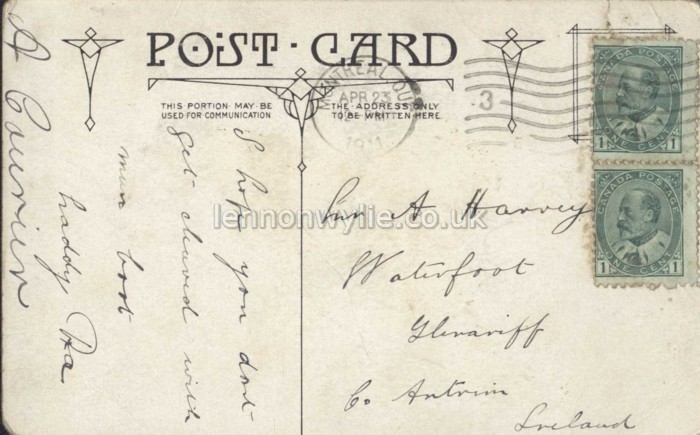 POST · CARD
THIS PORTION MAY BE
USED FOR COMMUNICATION
THE ADDRESS ONLY
TO BE WRITTEN HERE
MONTREAL QUE
APR 23
1911
3
CANADA POSTAGE
1 ONE CENT 1
CANADA POSTAGE
1 ONE CENT 1
I hope you dont
get chaved with
boot
A Courier
lennonwylie.co.uk
A Harvey
Waterfoot
Glenariff
Co Antrim
Ireland